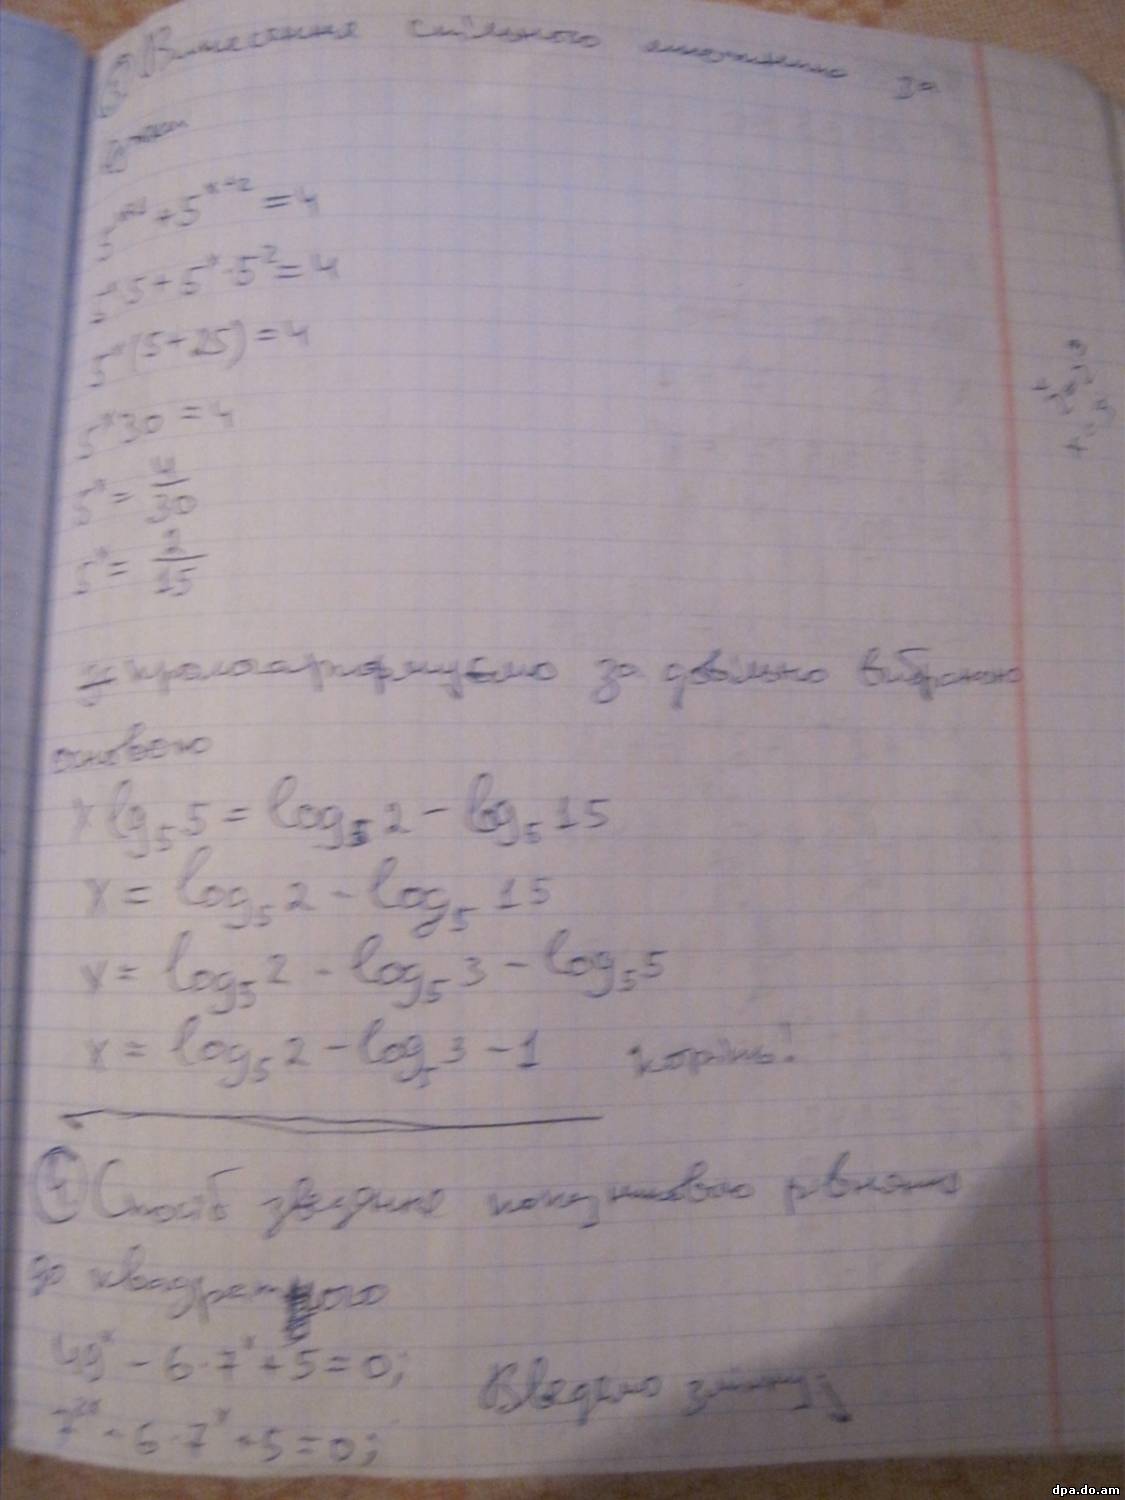 ③ Винесення спільного множника за
дужки
5ˣ⁺¹ + 5ˣ⁺² = 4
5ˣ·5 + 5ˣ·5² = 4
5ˣ(5+25) = 4
5ˣ30 = 4
5ˣ = 4/30
5ˣ = 2/15
прологарифмуємо за довільно вибраною
основою
x lg₅5 = log₅2 - log₅15
x = log₅2 - log₅15
x = log₅2 - log₅3 - log₅5
x = log₅2 - log₅3 - 1 корінь!
④ Спосіб зведення показникового рівняння
до квадратного
49ˣ - 6·7ˣ + 5 = 0; Введемо заміну!
7²ˣ - 6·7ˣ + 5 = 0;
dpa.do.am